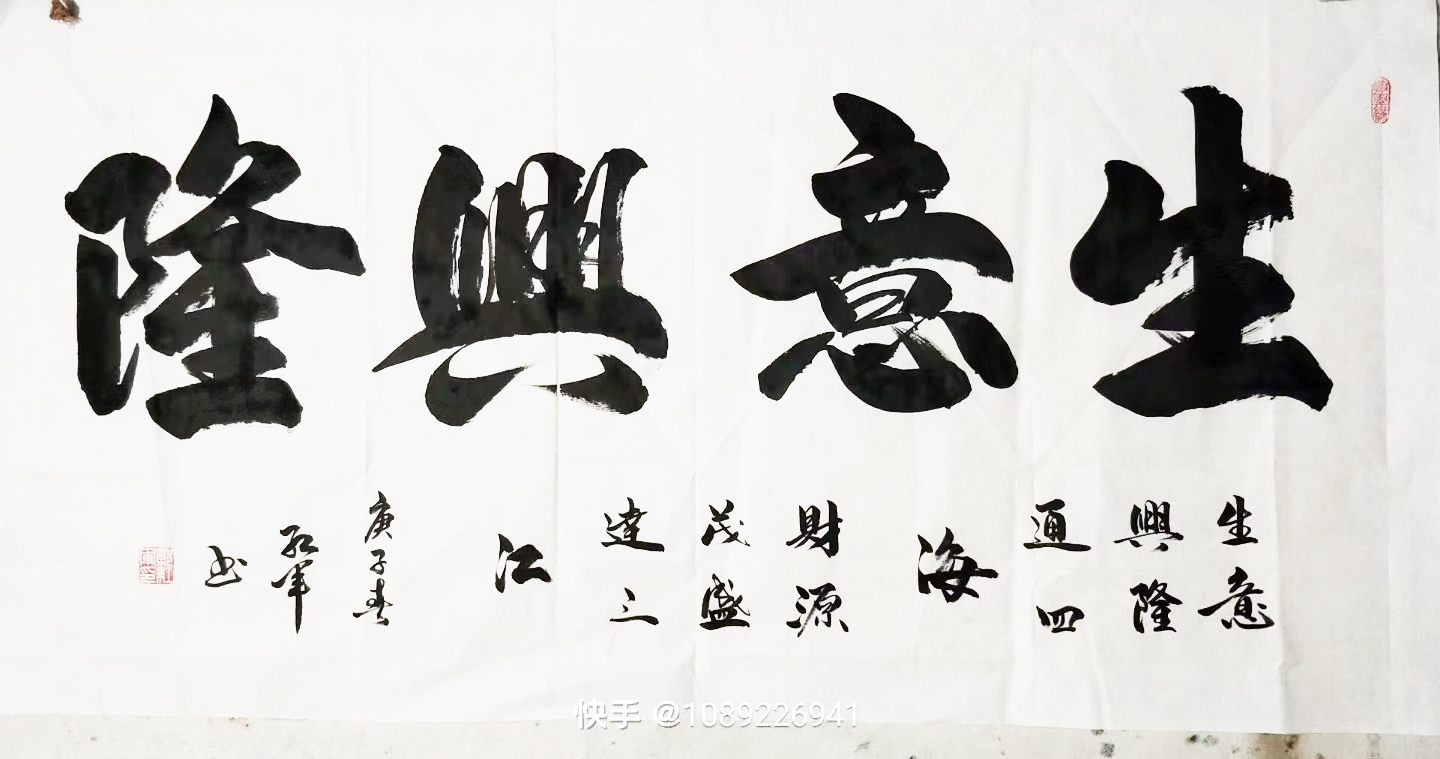 生意興隆
生意
興隆
通四
海
財源
茂盛
達三
江
庚子春
红军
书
快手 @1089226941